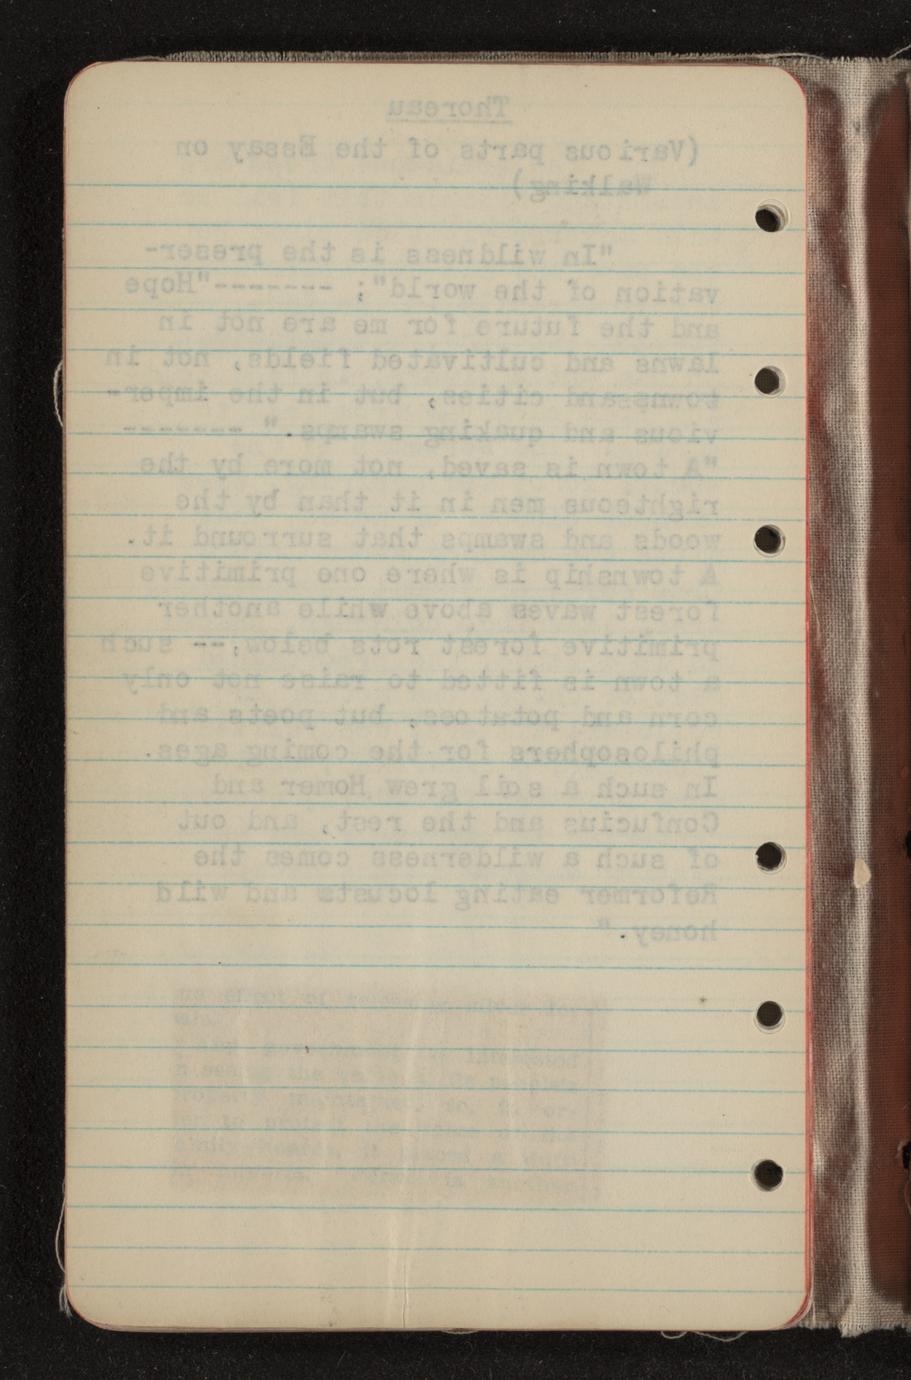 Thoreau
(Various parts of the Essay on
Walking)
"In wildness is the preser-
vation of the world"; -------"Hope
and the future for me are not in
lawns and cultivated fields, not in
towns and cities, but in the imper-
vious and quaking swamps." -------
"A town is saved, not more by the
righteous men in it than by the
woods and swamps that surround it.
A township is where one primitive
forest waves above while another
primitive forest rots below,-- such
a town is fitted to raise not only
corn and potatoes, but poets and
philosophers for the coming ages.
In such a soil grew Homer and
Confucius and the rest, and out
of such a wilderness comes the
Reformer eating locusts and wild
honey."